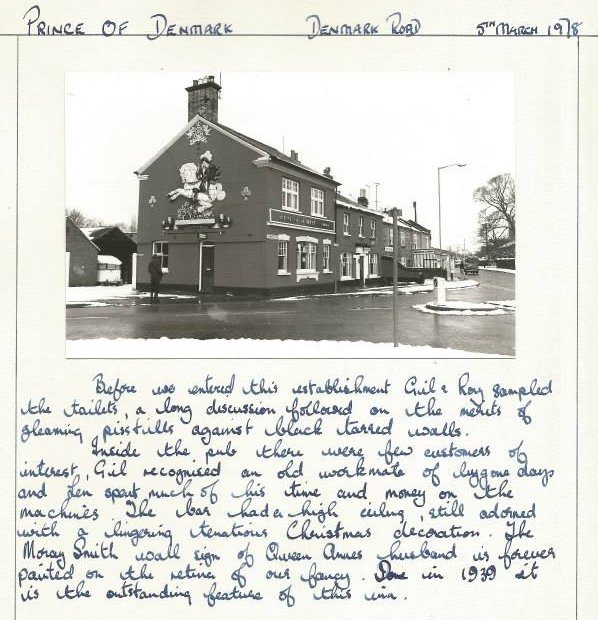 PRINCE OF DENMARK DENMARK ROAD 5TH MARCH 1978
Before we entered this establishment Gil & Roy sampled
the toilets, a long discussion followed on the merits of
gleaming pisstills against black tarred walls.
Inside the pub there were few customers of
interest, Gil recognised an old workmate of bygone days
and Len spent much of his time and money on the
machines The bar had a high ceiling, still adorned
with a lingering tenatious Christmas decoration. The
Moray Smith wall sign of Queen Annes husband is forever
painted on the retina of our fancy. Done in 1939 it
is the outstanding feature of this inn.